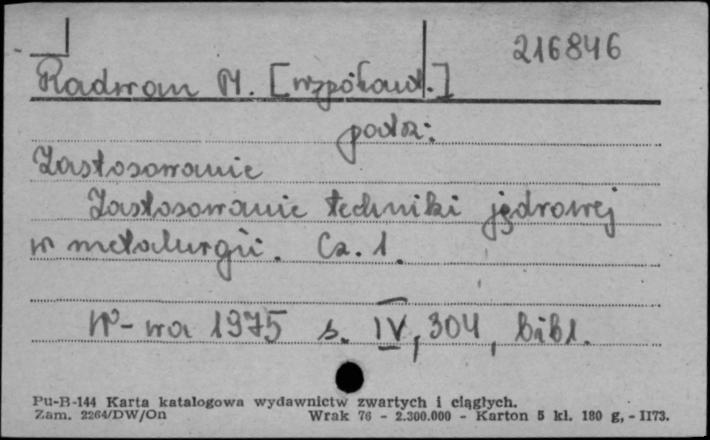 216846
Radwan M. [współaut.]
patrz:
Zastosowanie
Zastosowanie techniki jądrowej
w metalurgii. Cz. 1.
W-wa 1975 s. IV, 304, bibl.
Pu-B-144 Karta katalogowa wydawnictw zwartych i ciągłych.
Zam. 2264/DW/On Wrak 76 - 2.300.000 - Karton 5 kl. 180 g, - II73.